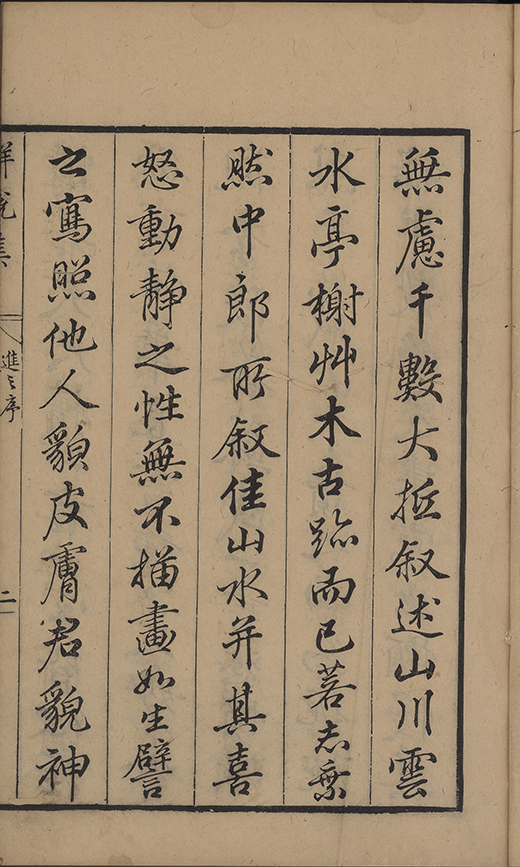 無慮千數大抵叙述山川雲
水亭榭艸木古跡而已若志乗
然中郎所叙佳山水并其喜
怒動靜之性無不描畫如生譬
之寫照他人貌皮膚君貌神
解脫集 進之序 二